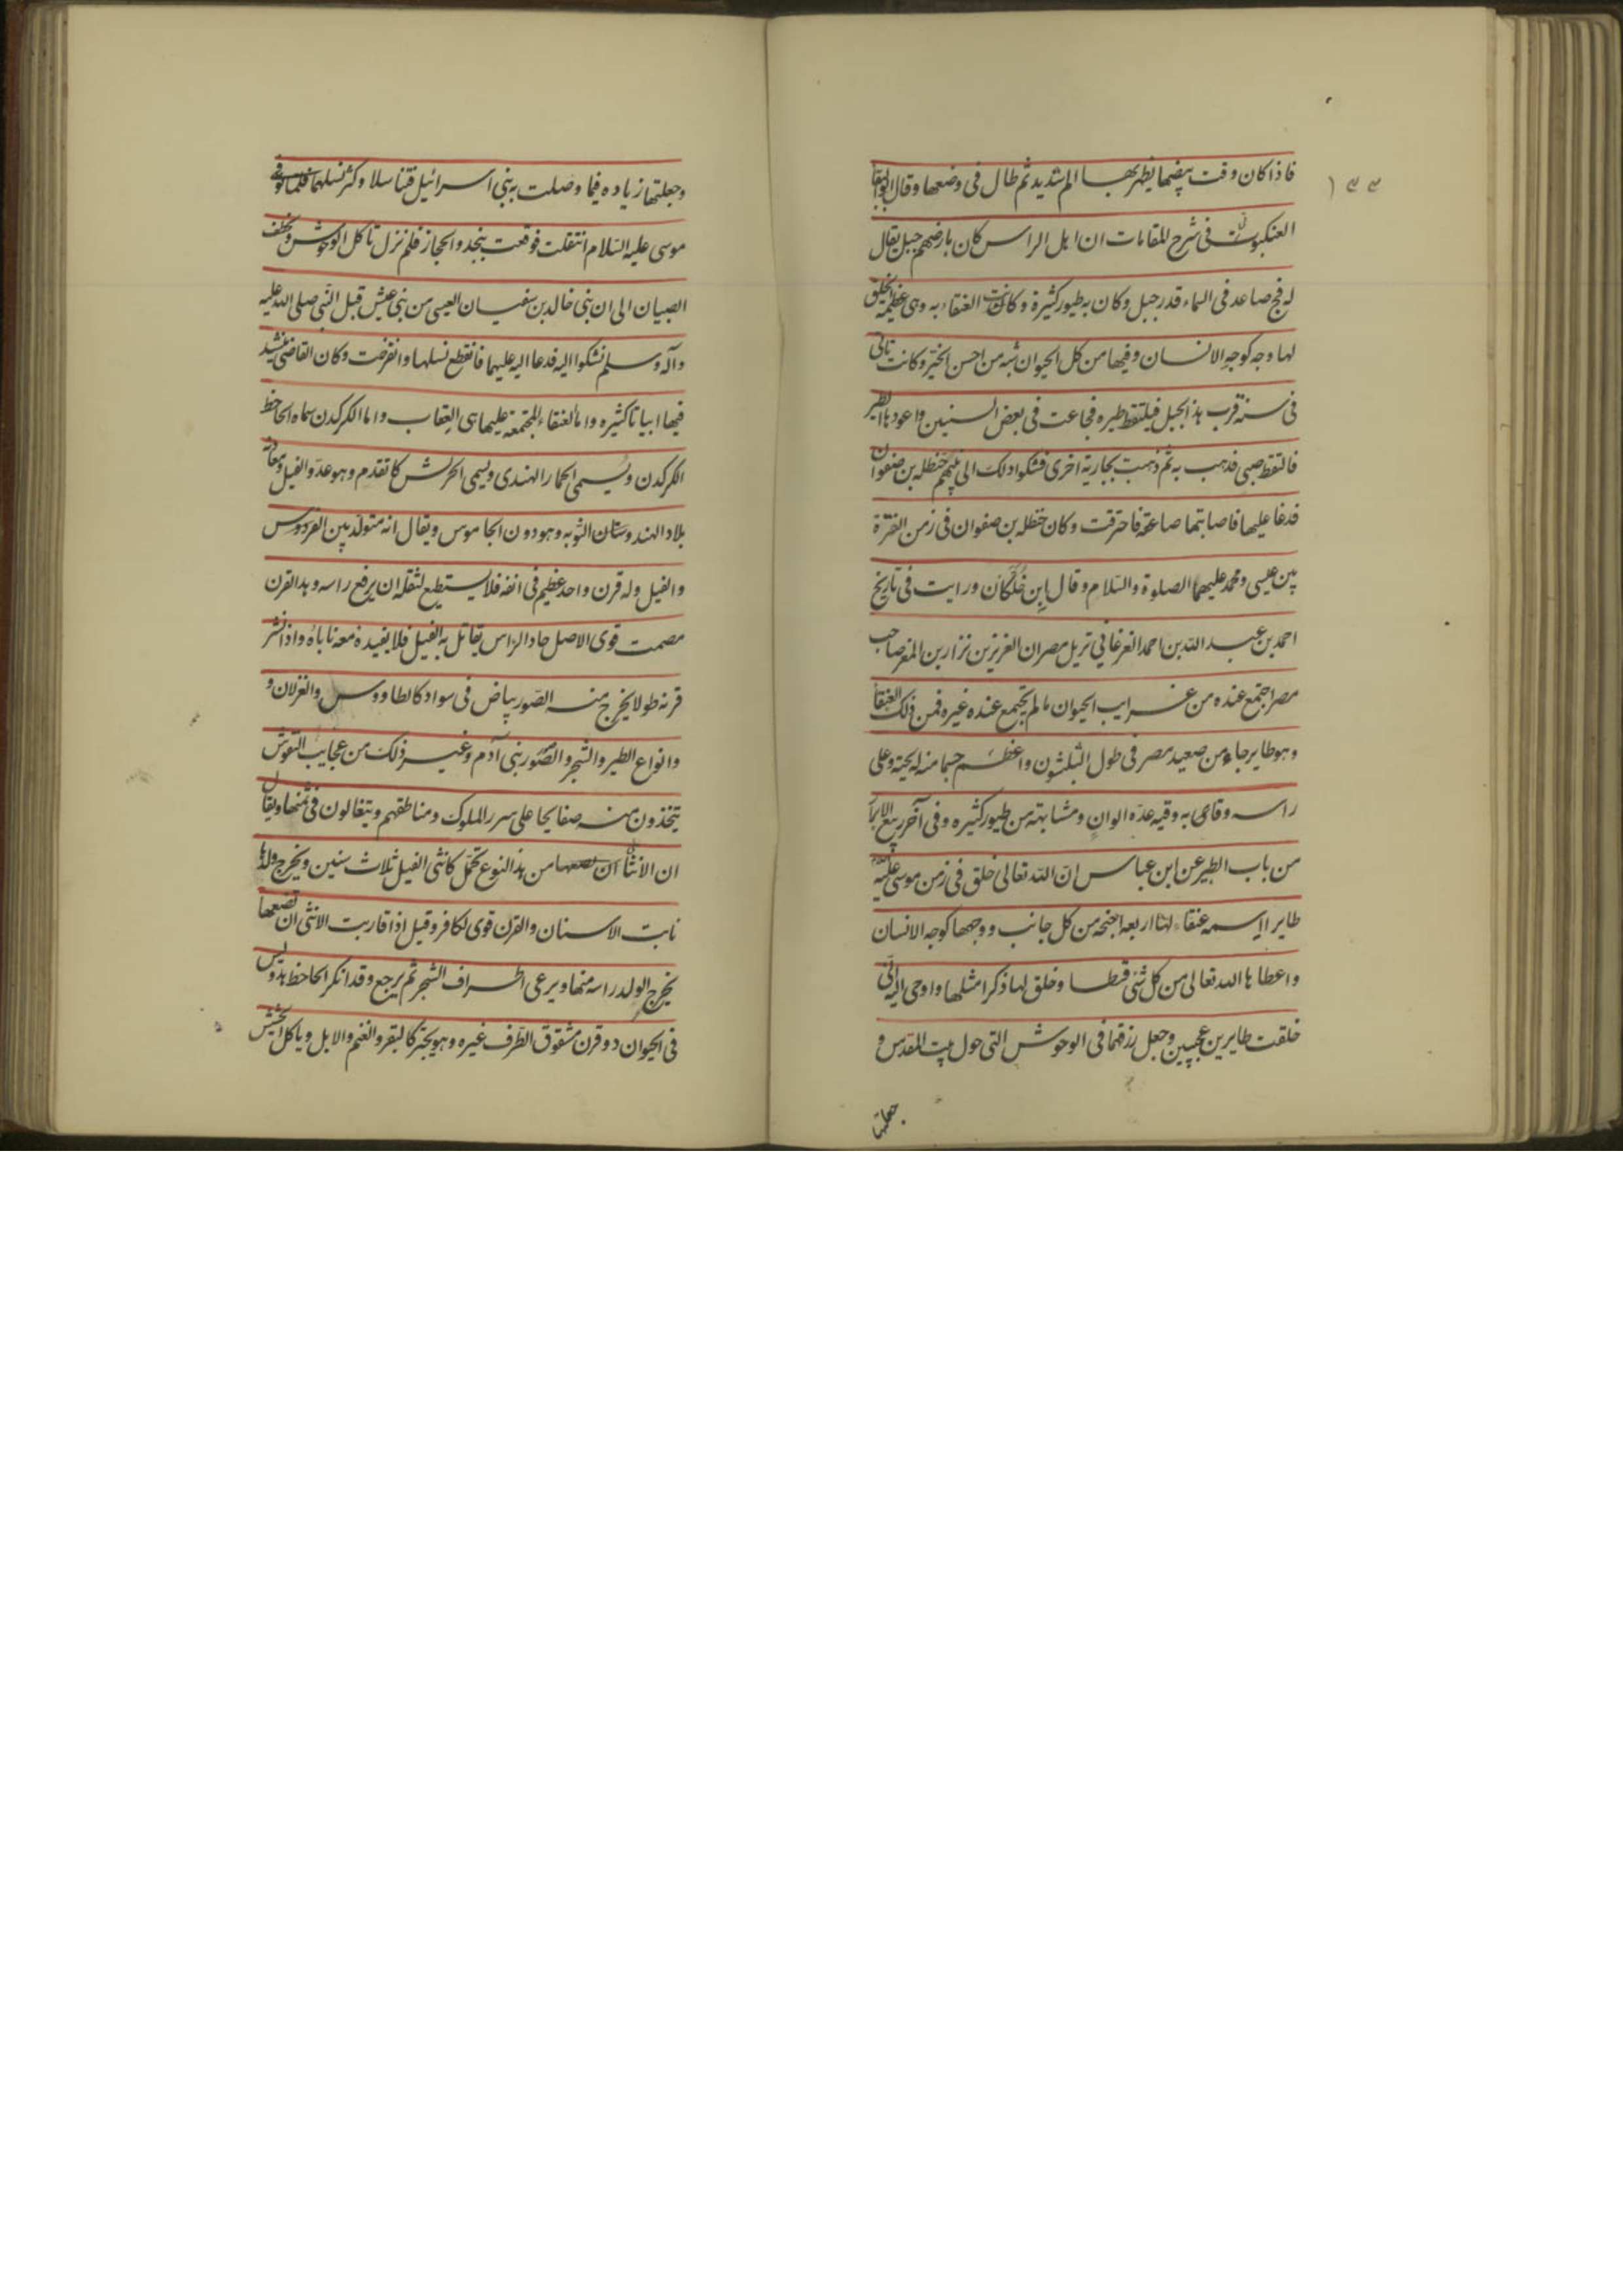 ١٣٣
فاذا كان وقت بيضها يظهر بها الم شديد ثم طال فى وضعها وقال ابوالبقا
العنكبوت فى شرح المقامات ان اهل الراس كان بارضهم جبل يقال
له فج صاعد فى السماء قدر جبل وكان به طيور كثيرة وكانت العنقاء به وهى عظيمة الخلق
لها وجه كوجه الانسان وفيها من كل الحيوان شبه من احسن الخير وكانت تاتى
فى سنة قرب هذا الجبل فيلتقط طيره فجاعت فى بعض السنين واعوذها الطير
فالتقط صبى فذهب به ثم ذهبت بجارية اخرى فشكوا ذلك الى نبيهم حنظله بن صفوان
فدعا عليها فاصابتها صاعقة فاحترقت وكان حنظله بن صفوان فى زمن الفترة
بين عيسى ومحمد عليهما الصلوة والسلام وقال ابن خلكان ورايت فى تاريخ
احمد بن عبد الله بن احمد الفرغانى نزيل مصر ان العزيز بن نزار بن المعز صاحب
مصر اجتمع عنده من غرايب الحيوان مالم يجتمع عنده غيره فمن ذلك العنقا
وهو طاير جاء من صعيد مصر فى طول البلشون واعظم جسما منه له لحية وعلى
راسه وقاى به وفيه عدة الوان ومشابهة من طيور كثيره وفى آخر ربيع الابرار
من باب الطير عن ابن عباس ان الله تعالى خلق فى زمن موسى عليه السلام
طايرا اسمه عنقاء لها اربعه اجنحه من كل جانب ووجهها كوجه الانسان
واعطاها الله تعالى من كل شئ قسطا وخلق لها ذكرا مثلها واوحى اليه انى
خلقت طايرين عجيبين وجعل رزقهما فى الوحوش التى حول بيت المقدس و
جعلتها
وجعلتها زياده فيما وصلت به بنى اسرائيل فتناسلا وكثر نسلهما فلما توفى
موسى عليه السلام انتقلت فوقعت بنجد والحجاز فلم نزل تاكل الوحوش وتخطف
الصبيان الى ان بنى خالد بن سفيان العيسى من بنى عبس قبل النبى صلى الله عليه
وآله وسلم فشكوا اليه فدعا اليه عليهما فانقطع نسلها وانقرضت وكان القاضى ينشد
فيها ابياتا كثيره واما العنقاء المجتمعة عليها هى العقاب واما الكركدن سماه الجاحظ
الكركدن ويسمى الحمار الهندى ويسمى الحريش كما تقدم وهو عدو الفيل ومعانه
بلاد الهندوستان النوبه وهو دون الجاموس ويقال انه متولد بين الفردوس
والفيل وله قرن واحد عظيم فى انفه فلا يستطيع لثقله ان يرفع راسه وهذا القرن
مصمت قوى الاصل حاد الراس يقاتل به الفيل فلا يفيده معه ناباه واذا نشر
قرنه طولا يخرج منه الصور بياض فى سواد كالطاووس والغزلان و
وانواع الطير والشجر والصور بنى آدم وغير ذلك من عجايب النقوش
يتخذون منه صفايحا على سرر الملوك ومناطقهم ويتغالون فى ثمنها ويقال
ان الانثا من هذا النوع تحمل كانثى الفيل ثلاث سنين ويخرج ولدها
نابت الاسنان والقرن قوى الحافر وقيل اذا قاربت الانثى ان تضعها
يخرج الولد راسه منها ويرعى اطراف الشجر ثم يرجع وقد انكر الجاحظ هذا وليس
فى الحيوان ذو قرن مشقوق الظرف غيره وهو يجتر كالبقر والغنم والابل وياكل الحشيش